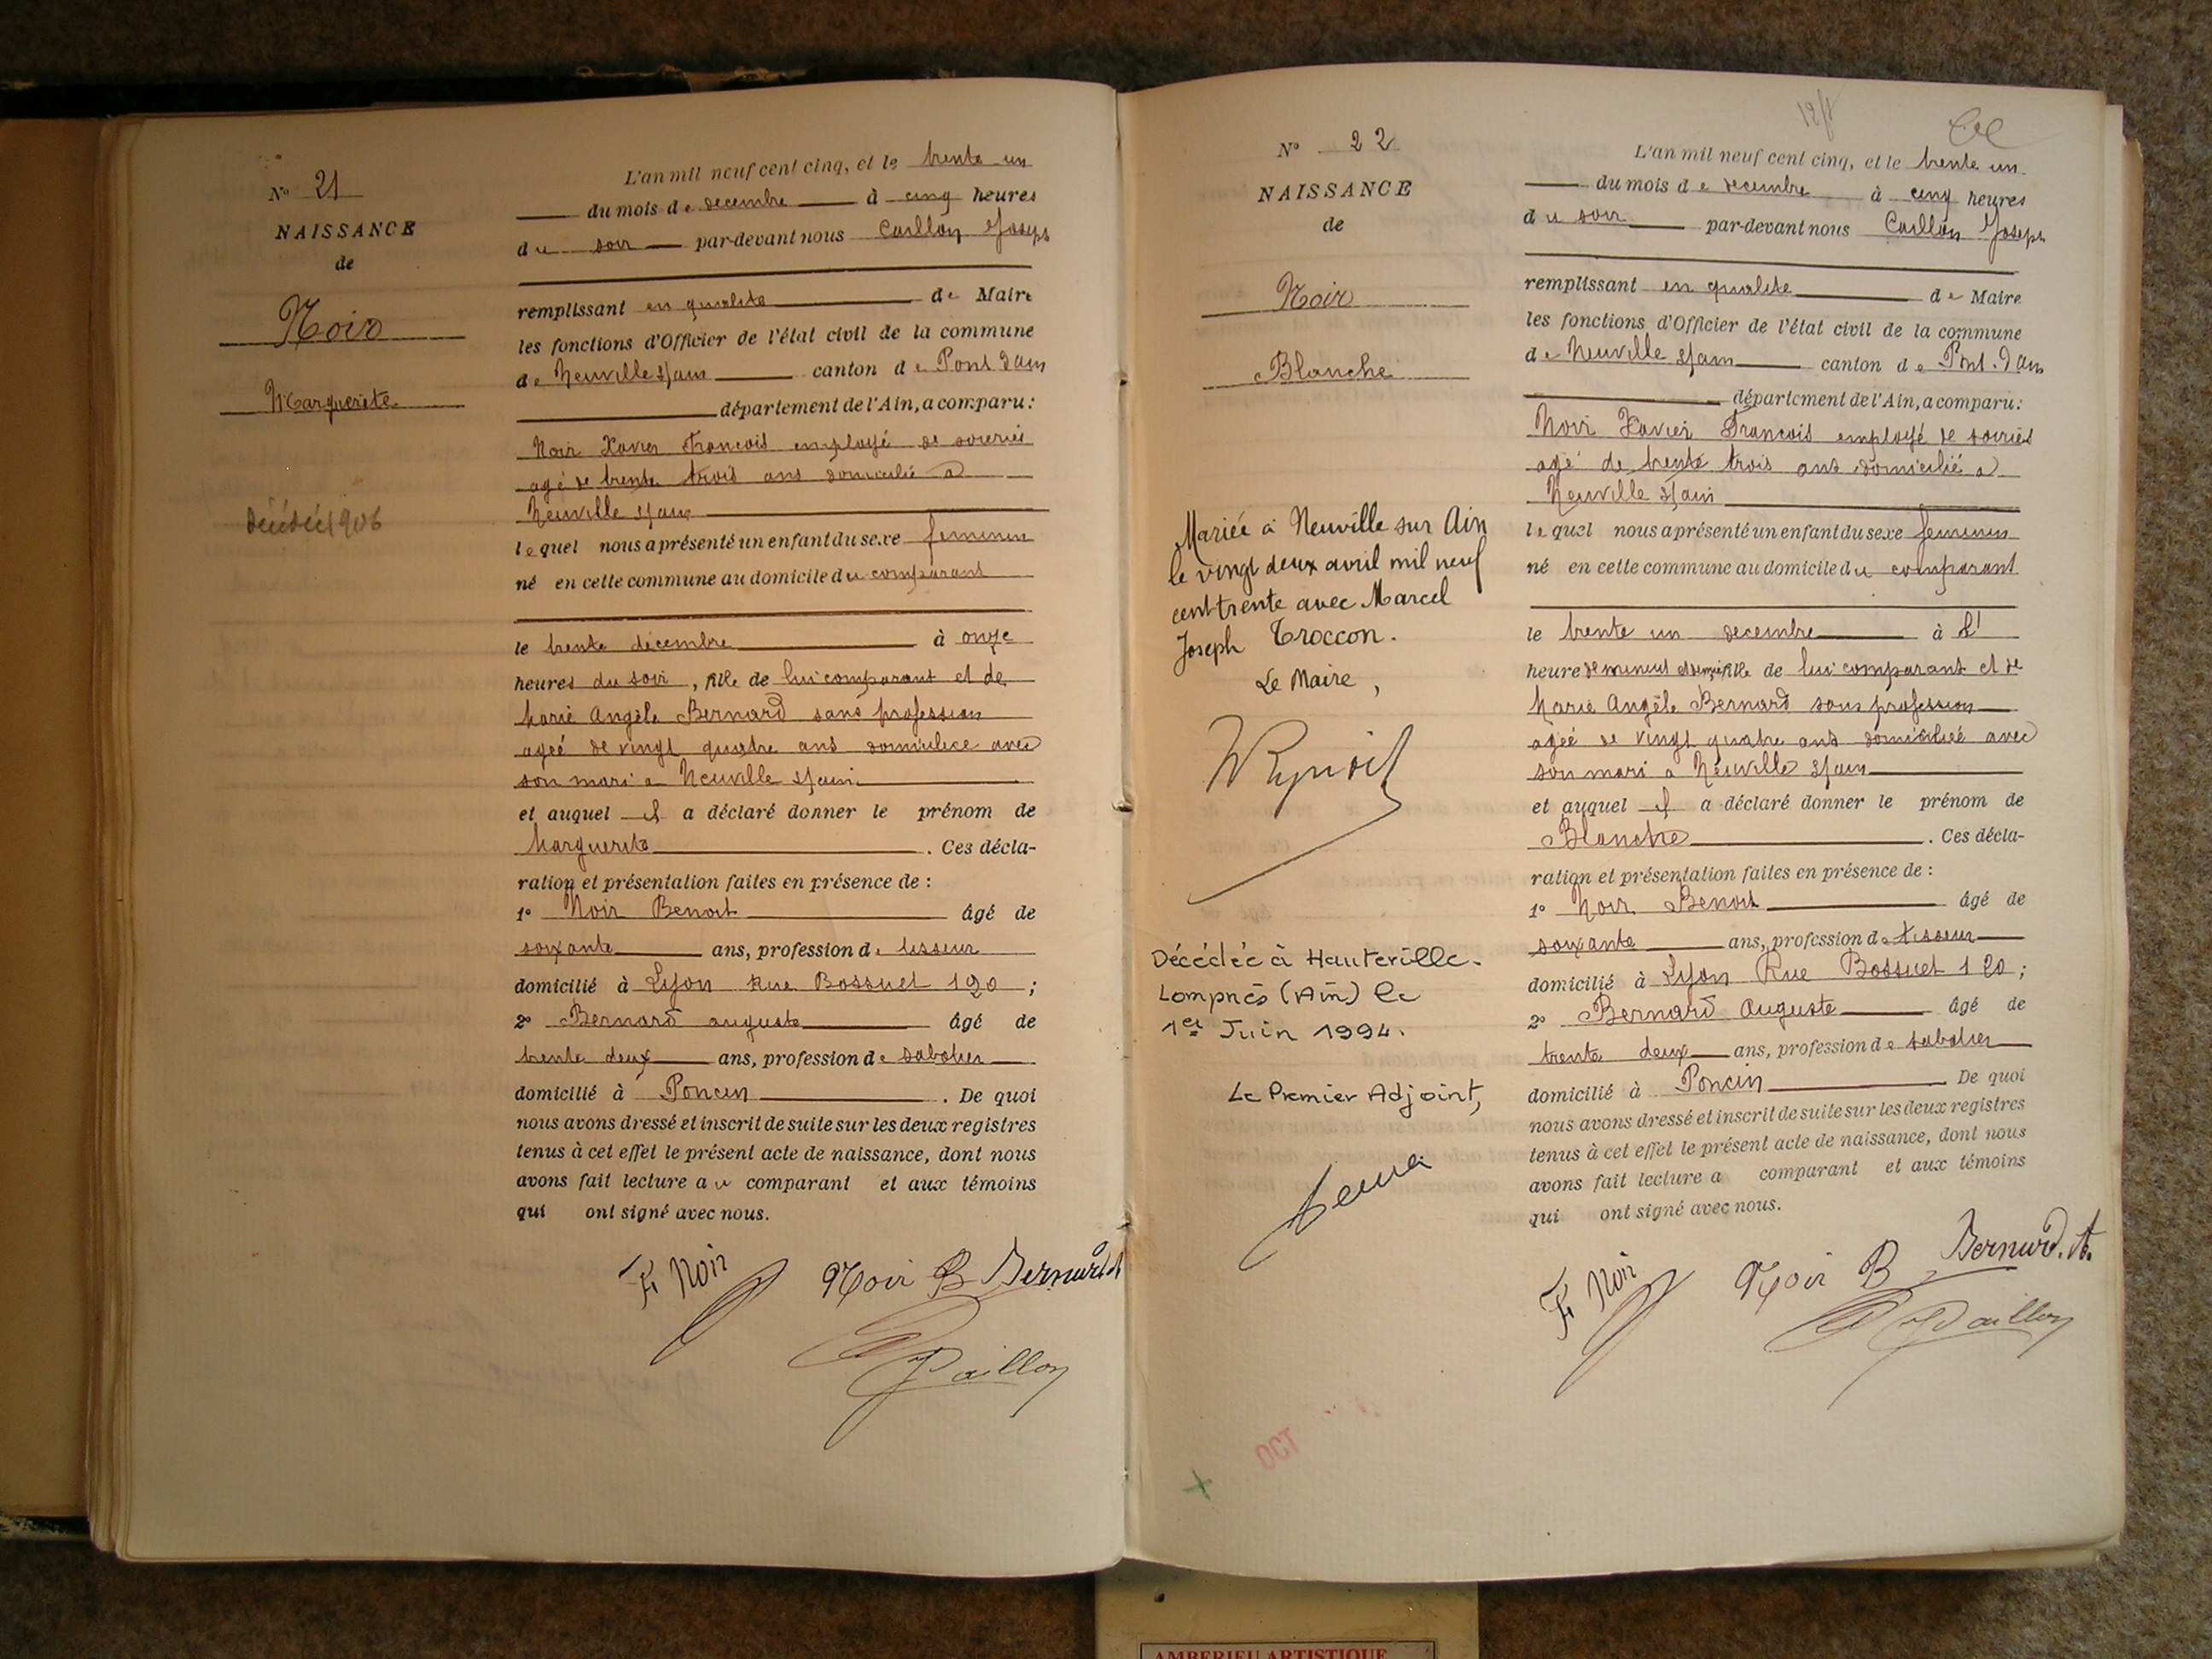 N° 21
NAISSANCE
de
Noir
Marguerite
décédée 1906
L'an mil neuf cent cinq, et le trente un
du mois de decembre à cinq heures
du soir par-devant nous Caillon Joseph
remplissant en qualite de Maire
les fonctions d'Officier de l'état civil de la commune
de Neuville s/ain canton de Pont d'ain
département de l'Ain, a comparu:
Noir Xavier Francois employé de soieries
agé de trente trois ans domicilié a
Neuville s/ain
lequel nous a présenté un enfant du sexe feminin
né en cette commune au domicile du comparant
le trente décembre à onze
heures du soir, fille de lui comparant et de
Marie Angèle Bernard sans profession
agée de vingt quatre ans domiciliée avec
son mari a Neuville s/ain
et auquel il a déclaré donner le prénom de
Marguerite. Ces décla-
ration et présentation faites en présence de :
1° Noir Benoit âgé de
soixante ans, profession de tisseur
domicilié à Lyon Rue Bossuet 120 ;
2° Bernard auguste âgé de
trente deux ans, profession de sabotier
domicilié à Poncin. De quoi
nous avons dressé et inscrit de suite sur les deux registres
tenus à cet effet le présent acte de naissance, dont nous
avons fait lecture au comparant et aux témoins
qui ont signé avec nous.
F Noir Noir B Bernard A
Caillon
N° 22
NAISSANCE
de
Noir
Blanche
Mariée à Neuville sur Ain
le vingt deux avril mil neuf
cent trente avec Marcel
Joseph Troccon.
Le Maire,
Décédée à Hauteville-
Lompnès (Ain) le
1er Juin 1994.
Le Premier Adjoint,
L'an mil neuf cent cinq, et le trente un
du mois de decembre à cinq heures
du soir par-devant nous Caillon Joseph
remplissant en qualite de Maire
les fonctions d'Officier de l'état civil de la commune
de Neuville s/ain canton de Pont-d'ain
département de l'Ain, a comparu:
Noir Xavier Francois employé de soieries
agé de trente trois ans domicilié a
Neuville s/ain
lequel nous a présenté un enfant du sexe feminin
né en cette commune au domicile du comparant
le trente un decembre à l'
heure de minuit et demie fille de lui comparant et de
Marie Angèle Bernard sans profession
agée de vingt quatre ans domiciliée avec
son mari a Neuville s/ain
et auquel il a déclaré donner le prénom de
Blanche. Ces décla-
ration et présentation faites en présence de :
1° Noir Benoit âgé de
soixante ans, profession de tisseur
domicilié à Lyon Rue Bossuet 120 ;
2° Bernard Auguste âgé de
trente deux ans, profession de sabotier
domicilié à Poncin De quoi
nous avons dressé et inscrit de suite sur les deux registres
tenus à cet effet le présent acte de naissance, dont nous
avons fait lecture a comparant et aux témoins
qui ont signé avec nous.
F Noir Noir B Bernard. A.
Caillon
AMBERIEU ARTISTIQUE